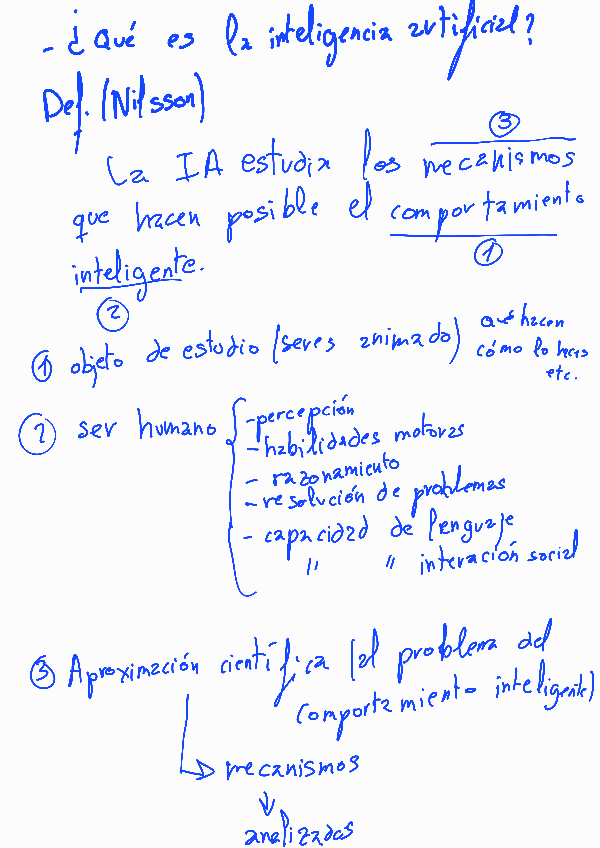 - ¿Qué es la inteligencia artificial?
Def. (Nilsson)
③
La IA estudia los mecanismos
que hacen posible el comportamiento
①
inteligente.
②
① objeto de estudio (seres animado) qué hacen
cómo lo hacen
etc.
② ser humano
- percepción
- habilidades motoras
- razonamiento
- resolución de problemas
- capacidad de lenguaje
" " interación social
③ Aproximación científica (al problema del
comportamiento inteligente)
mecanismos
analizados